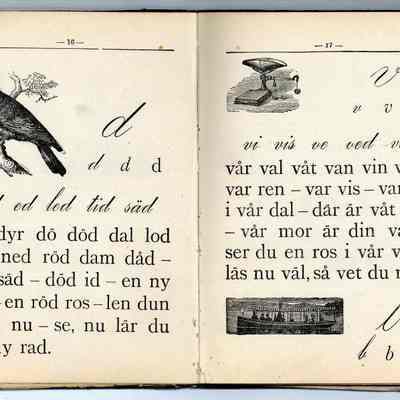 — 16 —
d
d d d
ed led tid säd
dyr dö död dal lod
ned röd dam dåd –
säd – död id – en ny
– en röd ros – len dun
nu – se, nu lär du
ny rad.
— 17 —
V
v v
vi vis ve ved
vår val våt van vin
var ren – var vis – var
i vår dal – där är våt
– vår mor är din
ser du en ros i vår
läs nu väl, så vet du
b b